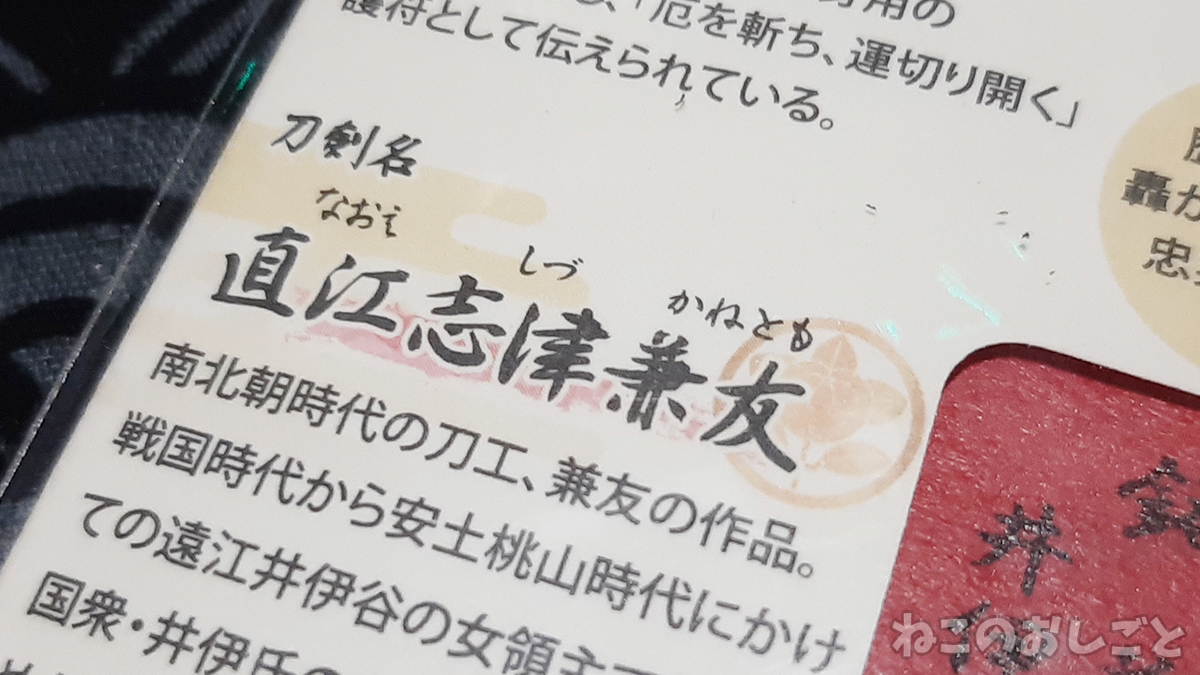 用の
「厄を斬ち、運切り開く」
護符として伝えられている。
刀剣名
なおえ しづ かねとも
直江志津兼友
南北朝時代の刀工、兼友の作品。
戦国時代から安土桃山時代にかけ
ての遠江井伊谷の女領主
国衆・井伊氏の
轟か
忠
井伊
ねこのおしごと